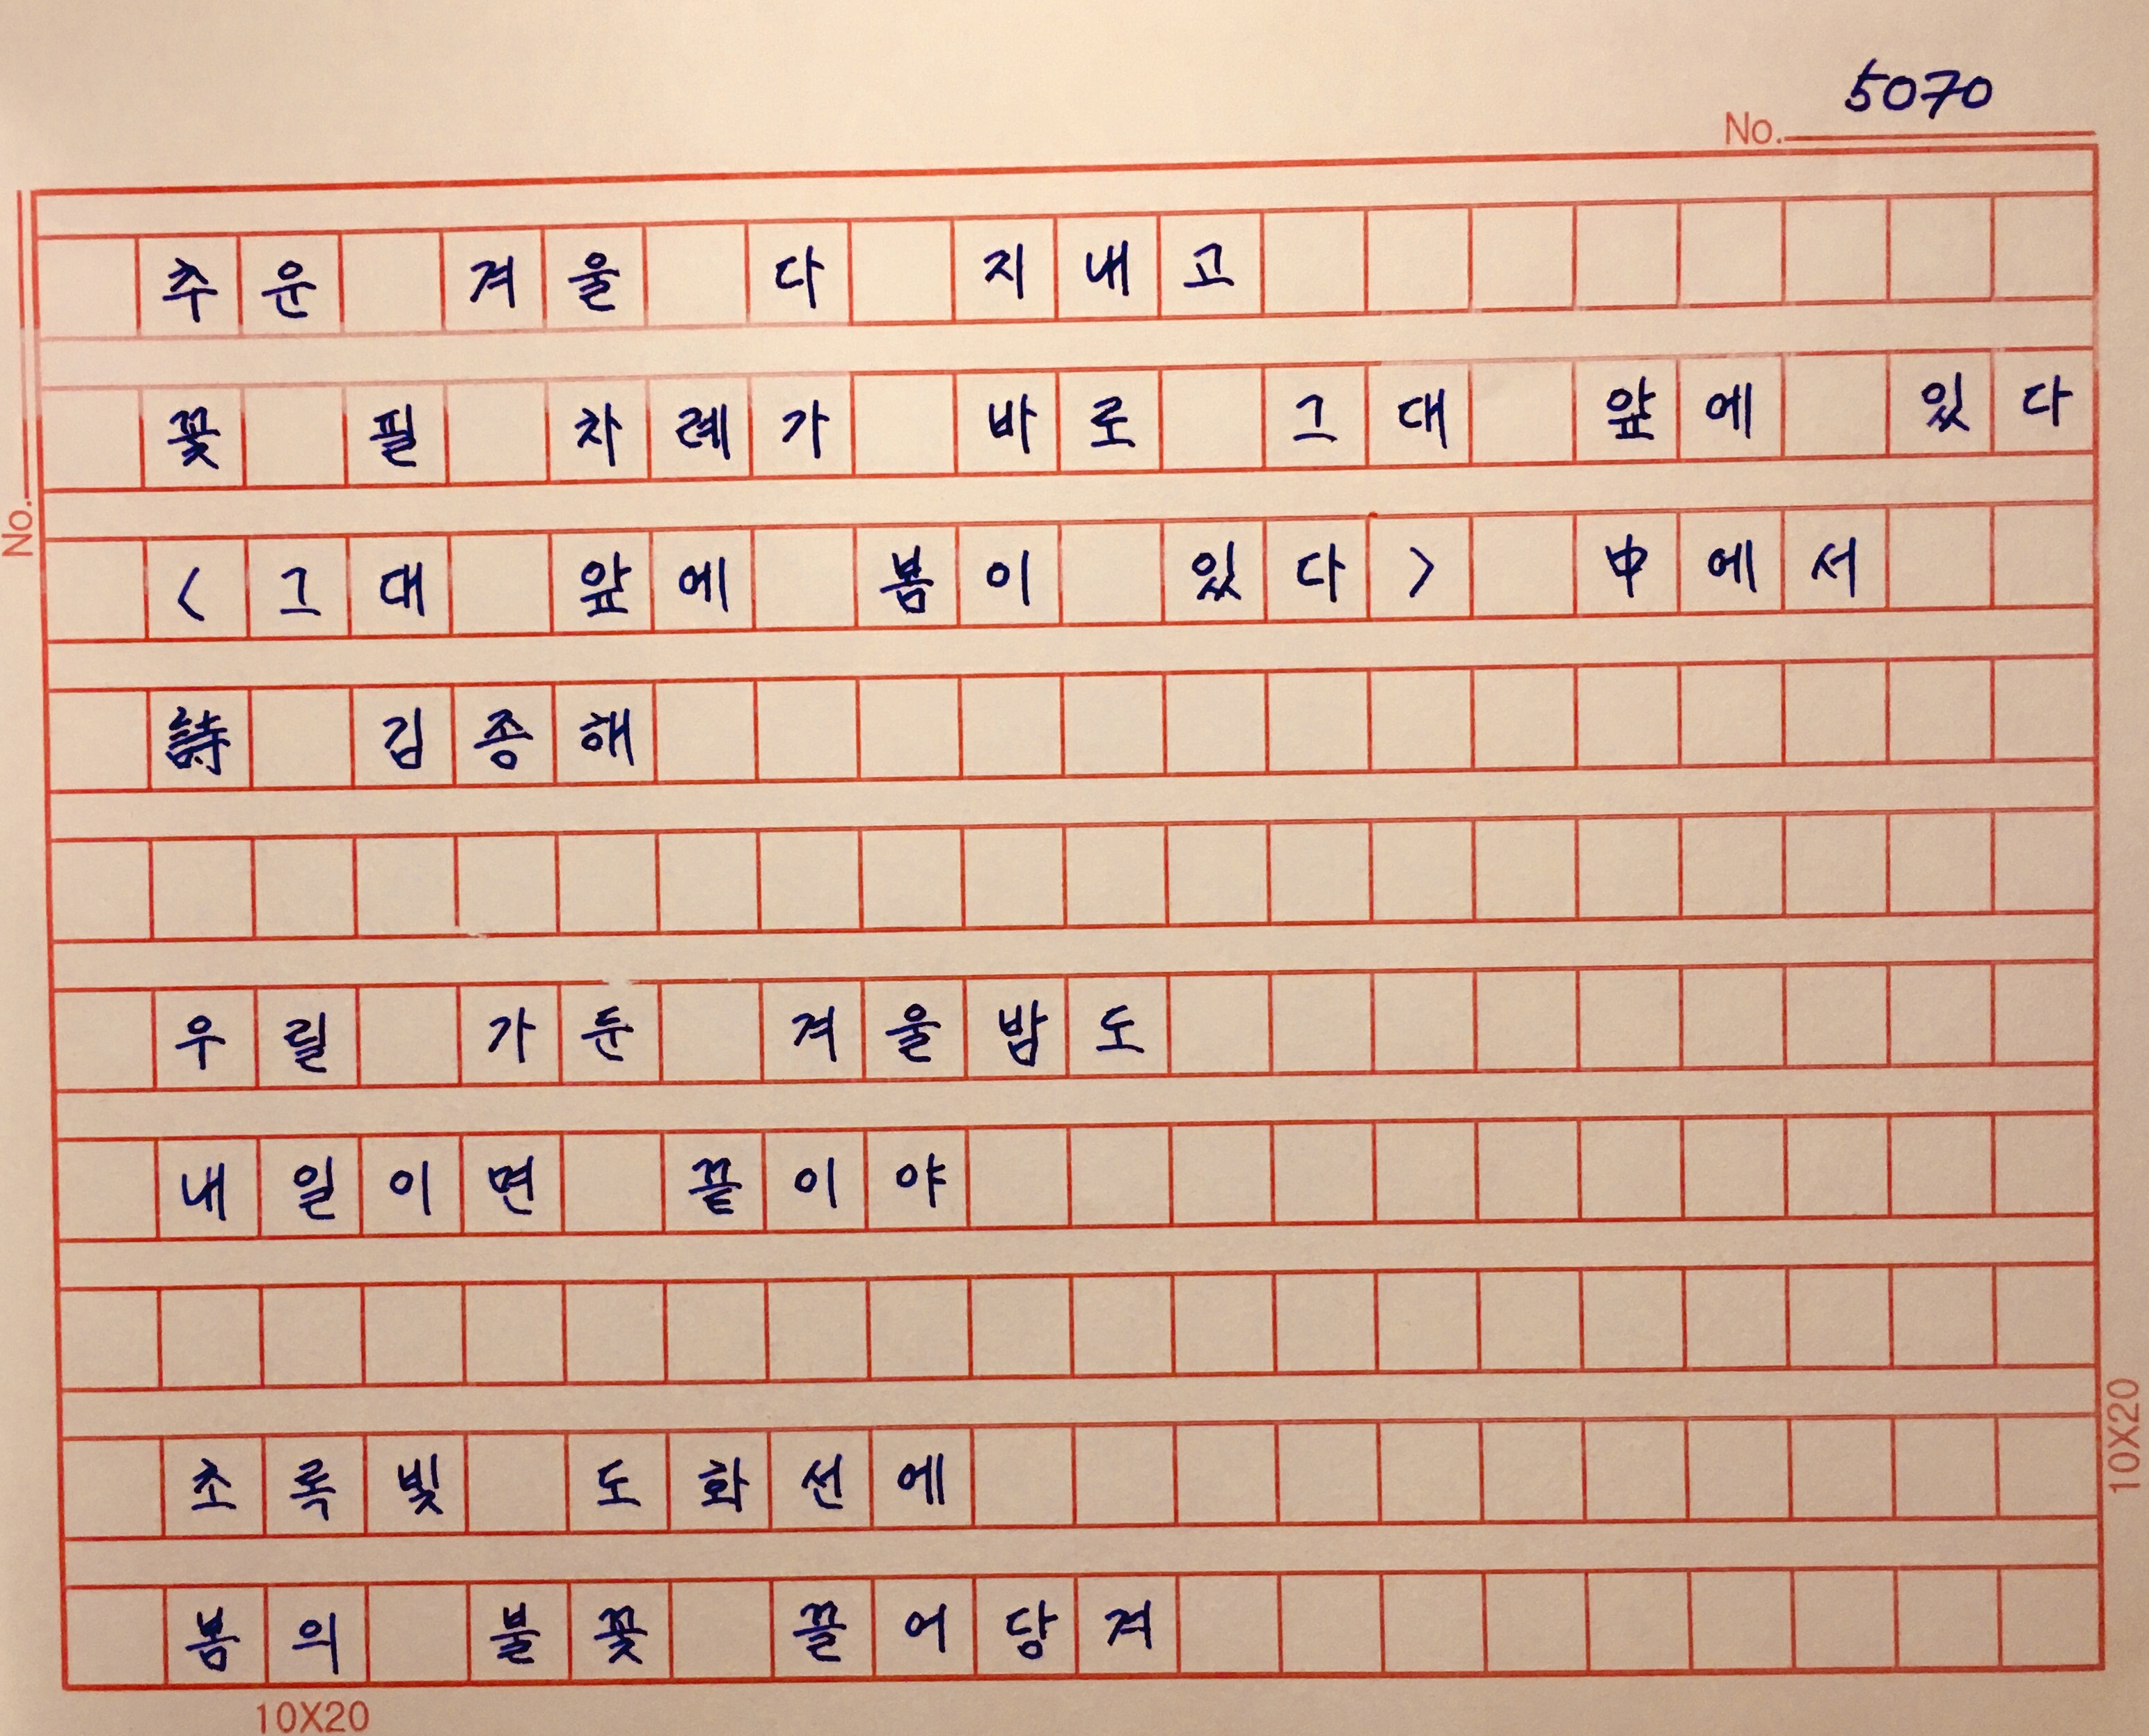 5070
No.
추운 겨울 다 지내고
꽃 필 차례가 바로 그대 앞에 있다
<그대 앞에 봄이 있다> 中에서
詩 김종해
우릴 가둔 겨울밤도
내일이면 끝이야
초록빛 도화선에
봄의 불꽃 끌어당겨
No.
10X20
10X20